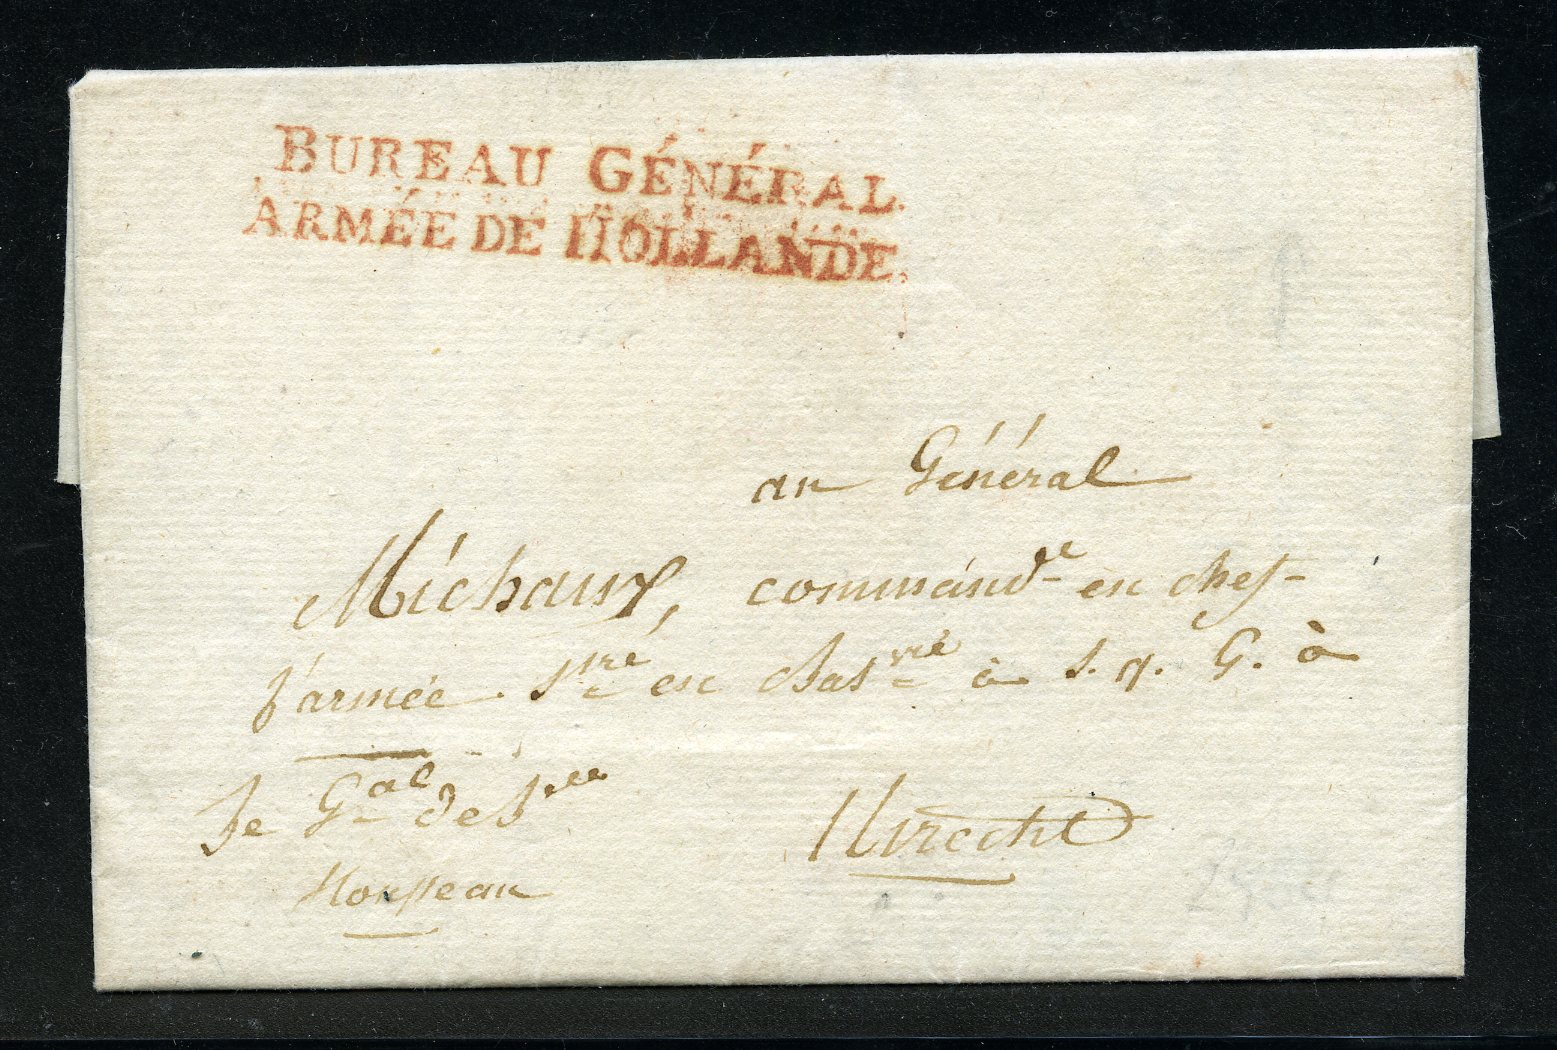 BUREAU GÉNÉRAL.
ARMÉE DE HOLLANDE.
au Général
Michaux, command.te en chef
l'armée f.re en Batv.ie à s. q. G. à
Utrecht
Le G.al de